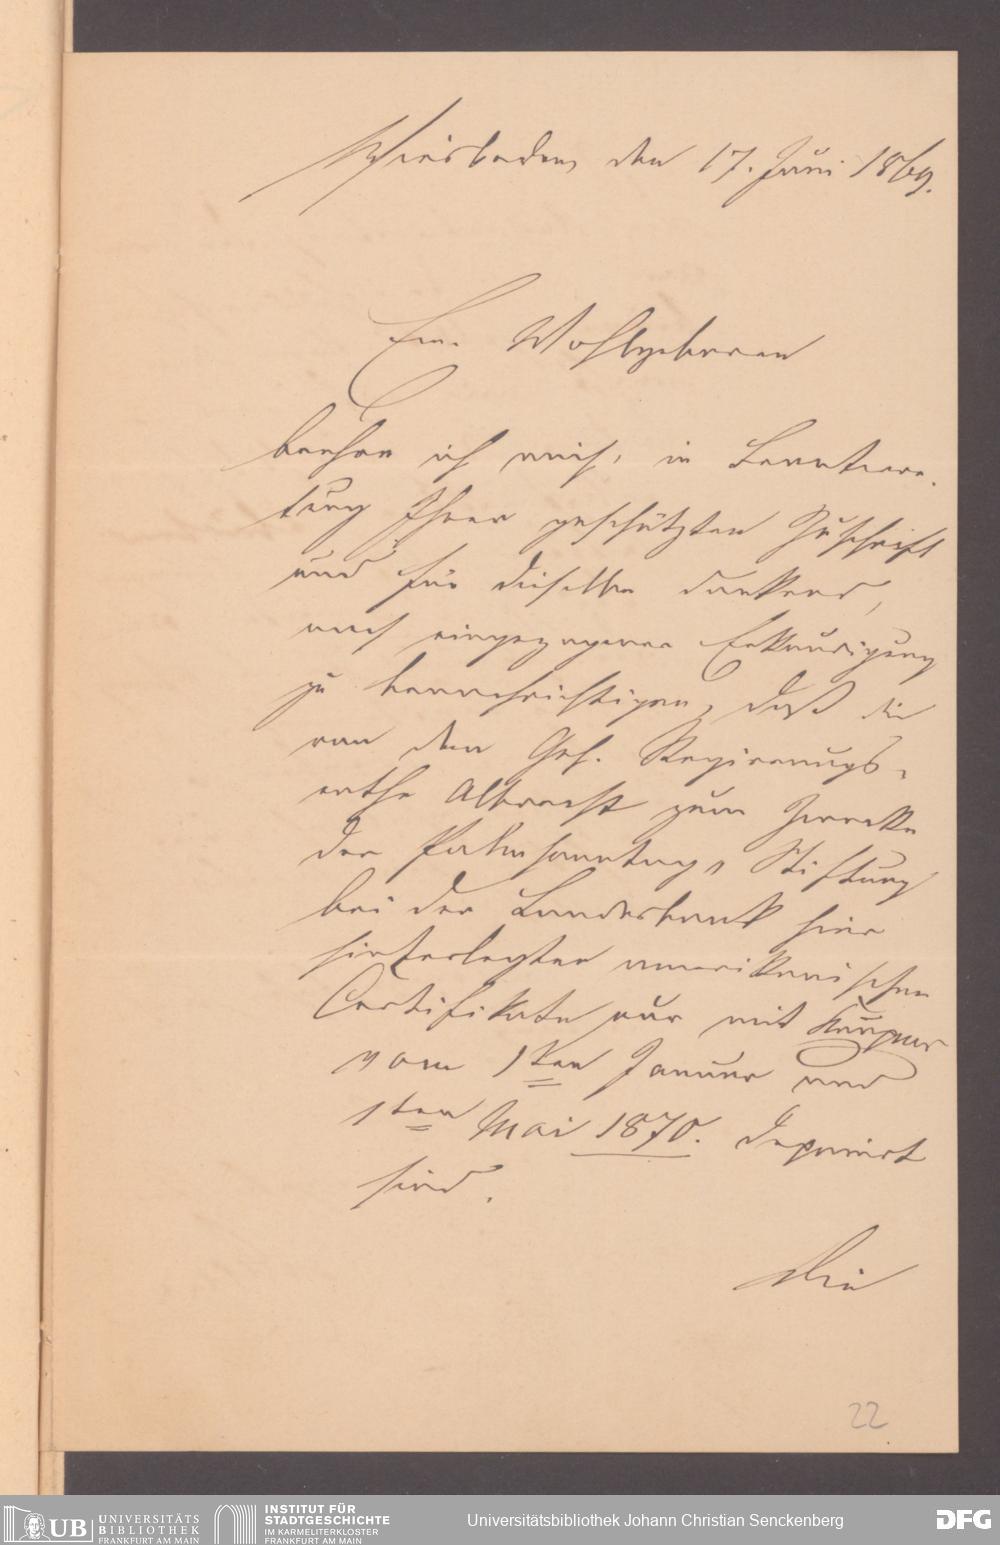 Wiesbaden, den 17. Juni 1869.
Euer Wohlgeboren
beehre ich mich, in Beantwor-
tung Ihrer geschätzten Zuschrift
und für dieselbe dankend,
nach eingezogener Erkundigung
zu benachrichtigen, daß die
von dem Geh. Regierungs-
rathe Albrecht zum Zwecke
der Palmsonntags Stiftung
bei der Landesbank hier
hinterlegten amerikanischen
Certifikate nur mit Kupons
vom 1ten Januar und
1ten Mai 1870. deponirt
sind.
Die
22
UB UNIVERSITÄTS
BIBLIOTHEK
FRANKFURT AM MAIN
INSTITUT FÜR
STADTGESCHICHTE
IM KARMELITERKLOSTER
FRANKFURT AM MAIN
Universitätsbibliothek Johann Christian Senckenberg
DFG